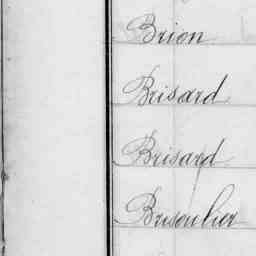 Brion
Brisard
Brisard
Brisoulier